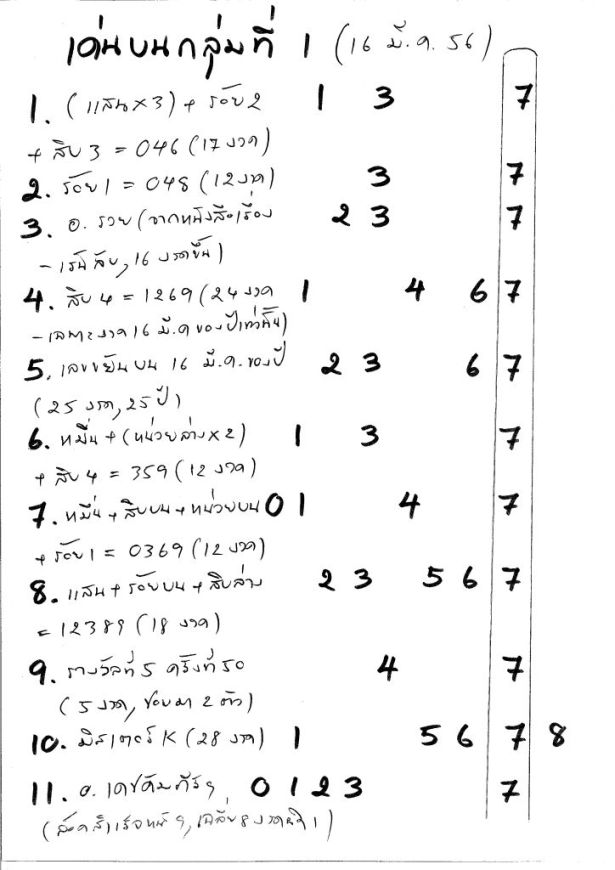 เด่นบนกลุ่มที่ 1 (16 มี.ค. 56)
1. (แสน×3) + ร้อย 2 1 3 7
+ สิบ 3 = 046 (17 งวด)
2. ร้อย 1 = 048 (12 งวด) 3 7
3. อ. รวย (จากหนังสือเรื่อง 2 3 7
16 งวดขึ้น)
4. สิบ 4 = 1269 (24 งวด 1 4 6 7
- เฉพาะงวด 16 มี.ค ของปีเท่านั้น)
5. เลขขยันบน 16 มี.ค. ของปี 2 3 6 7
(25 งวด, 25 ปี)
6. หมื่น + (หน่วยล่าง×2) 1 3 7
+ สิบ 4 = 359 (12 งวด)
7. หมื่น + สิบบน + หน่วยบน 0 1 4 7
+ ร้อย 1 = 0369 (12 งวด)
8. แสน + ร้อยบน + สิบล่าง 2 3 5 6 7
= 12389 (18 งวด)
9. รางวัลที่ 5 ครั้งที่ 50 4 7
(5 งวด, ชอบมา 2 ตัว)
10. มิสเตอร์ K (28 งวด) 1 5 6 7 8
11. อ. 0 1 2 3 7